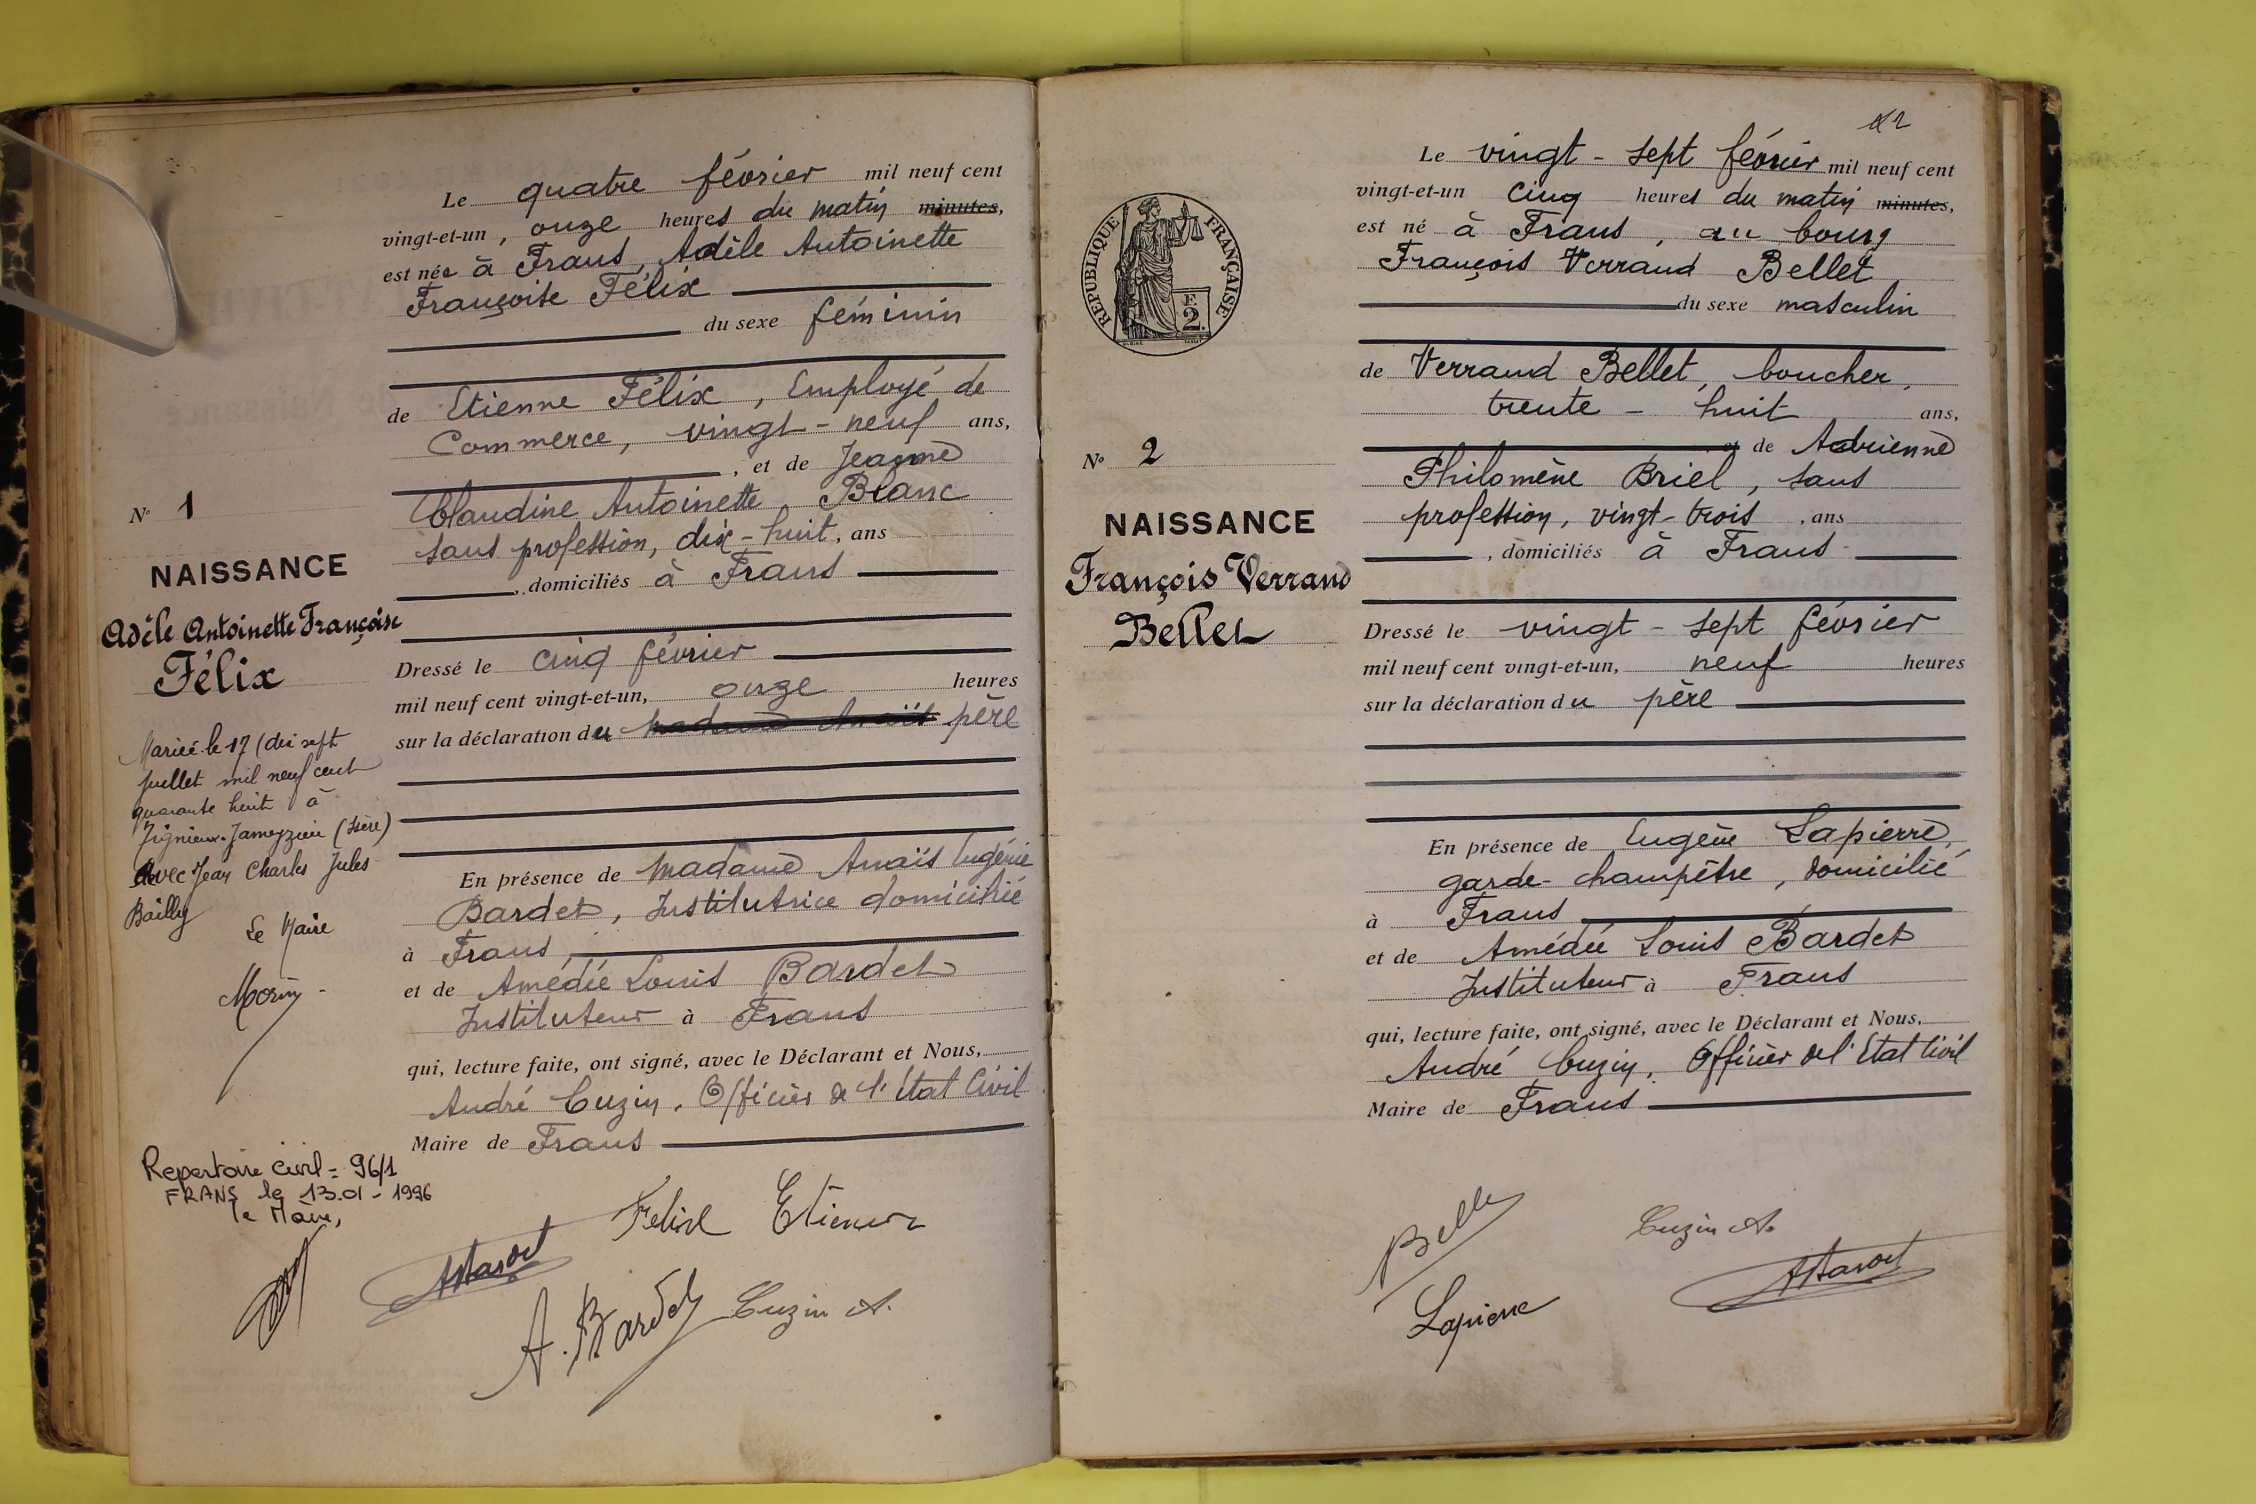 Le quatre février mil neuf cent
vingt-et-un, onze heures du matin minutes,
est née à Frans, Adèle Antoinette
Françoise Félix
du sexe féminin
de Etienne Félix, Employé de
Commerce, vingt-neuf ans,
, et de Jeanne
Claudine Antoinette Blanc
sans profession, dix-huit, ans
, domiciliés à Frans
Dressé le cinq février
mil neuf cent vingt-et-un, onze heures
sur la déclaration du madame Anaïs père
En présence de Madame Anaïs Eugénie
Bardet, Institutrice domicilié
à Frans,
et de Amédée Louis Bardet
Instituteur à Frans
qui, lecture faite, ont signé, avec le Déclarant et Nous,
André Cuzin, Officier de l'Etat Civil
Maire de Frans
Félix Etienne
ABardet
A. Bardet Cuzin A.
No 1
NAISSANCE
Adèle Antoinette Françoise
Félix
Mariée le 17 (dix sept
juillet mil neuf cent
quarante huit à
Tignieux-Jameyzieu (Isère)
avec Jean Charles Jules
Bailly
Le Maire
Morin
Repertoire civil = 96/1
FRANS le 13.01-1996
le Maire,
Le vingt-sept février mil neuf cent
vingt-et-un cinq heures du matin minutes,
est né à Frans, au bourg
François Verrand Bellet
du sexe masculin
de Verrand Bellet, boucher,
trente-huit ans,
et de Adrienne
Philomène Briel, sans
profession, vingt-trois, ans
, domiciliés à Frans
Dressé le vingt-sept février
mil neuf cent vingt-et-un, neuf heures
sur la déclaration du père
En présence de Eugène Lapierre,
garde-champêtre, domicilié
à Frans
et de Amédée Louis Bardet
Instituteur à Frans
qui, lecture faite, ont signé, avec le Déclarant et Nous,
André Cuzin, Officier de l'Etat Civil
Maire de Frans
Bellet
Cuzin A.
Lapierre
ABardet
RÉPUBLIQUE FRANÇAISE
F.
2.
No 2
NAISSANCE
François Verrand
Bellet